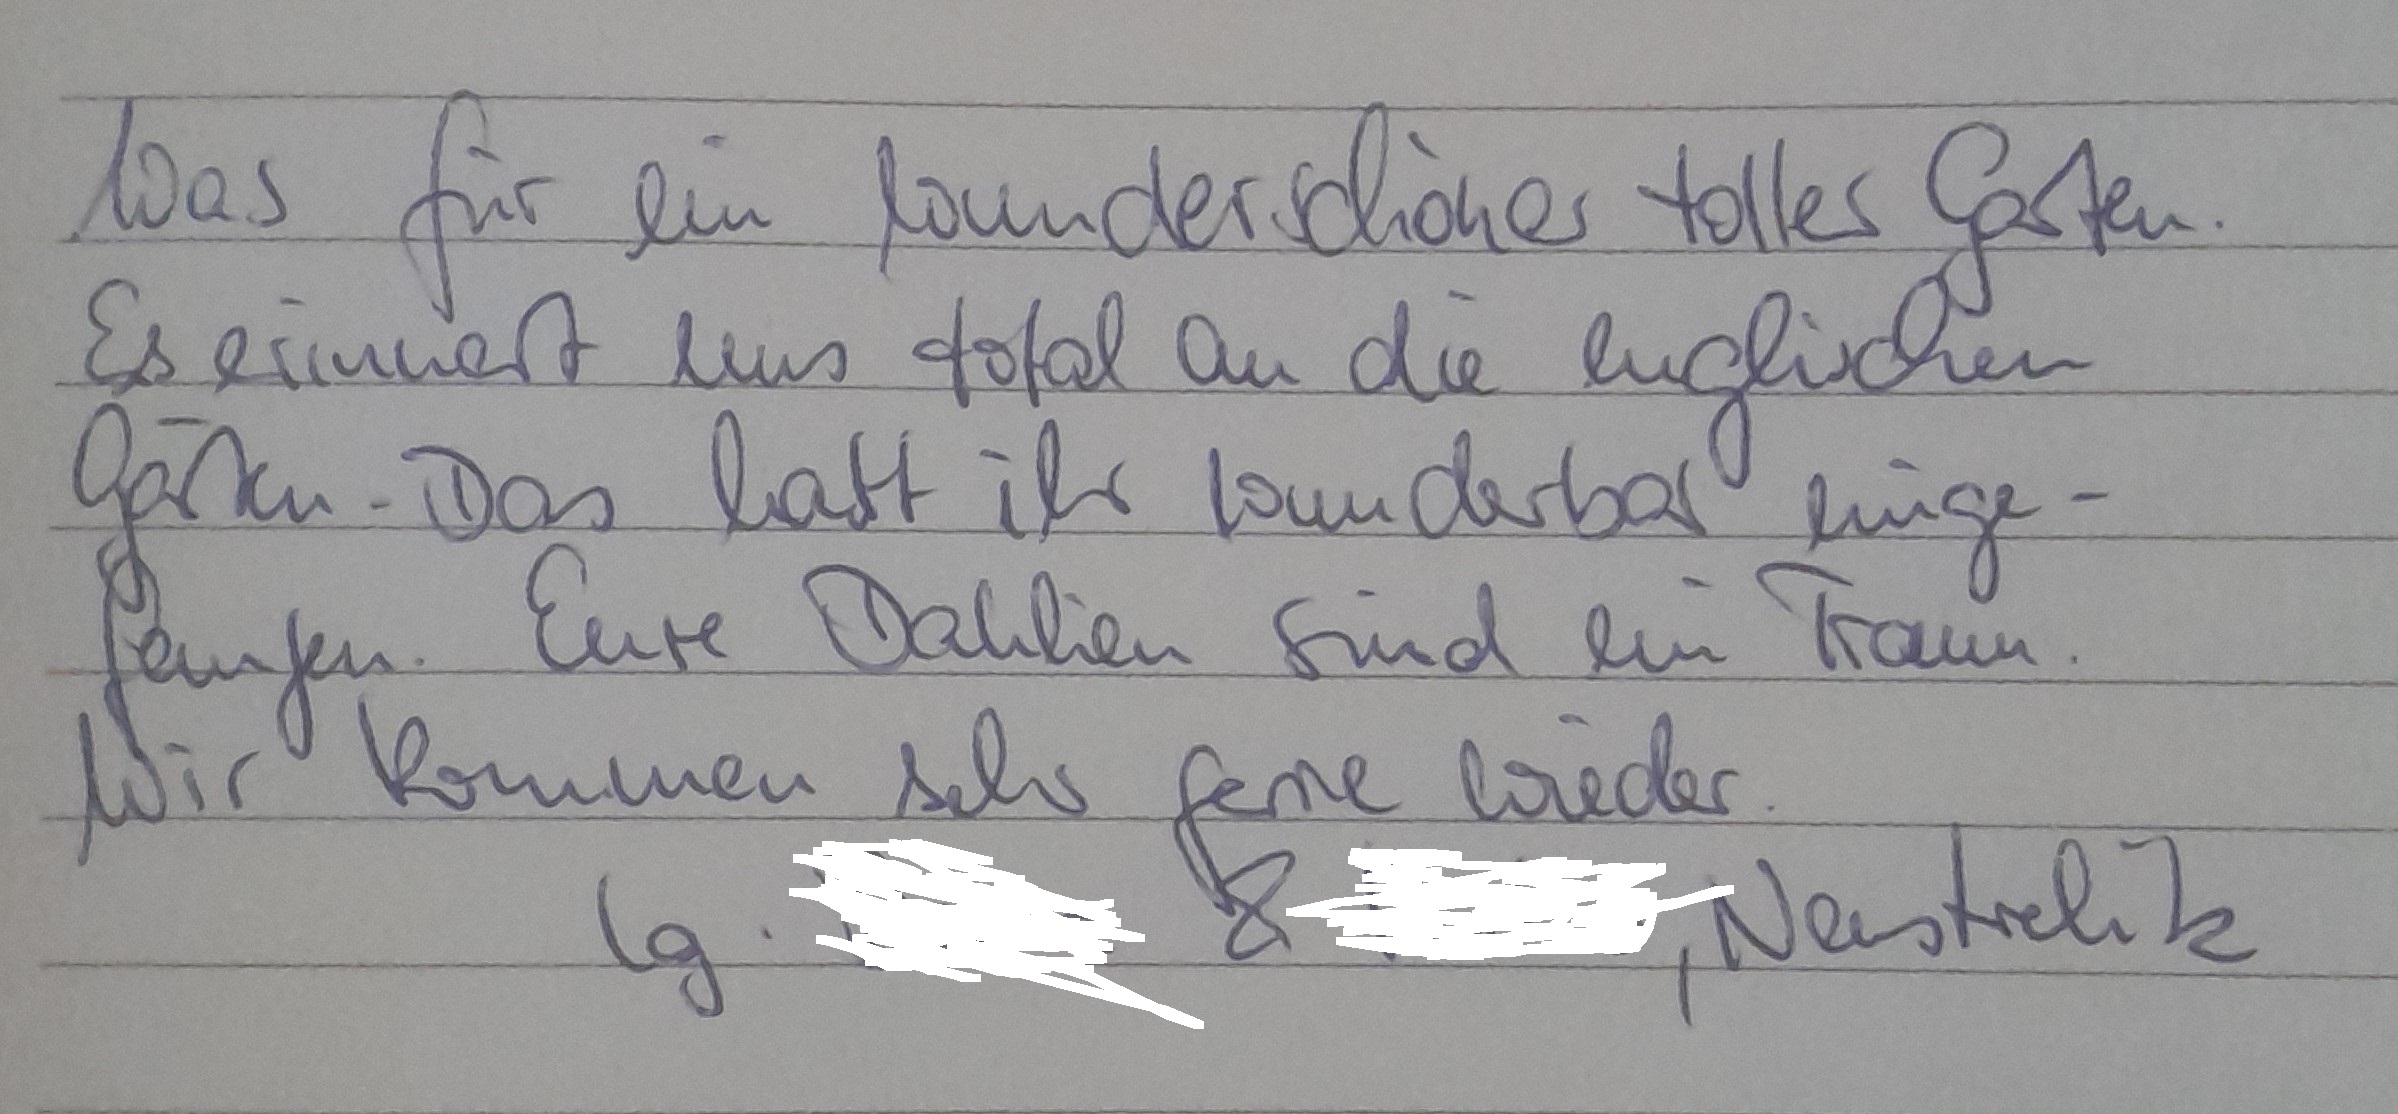 Was für ein wunderschönes tolles Garten.
Es erinnert uns total an die englischen
Gärten. Das habt ihr wunderbar einge-
fangen. Eure Dahlien sind ein Traum.
Wir kommen sehr gerne wieder.
lg. & , Neustrelitz